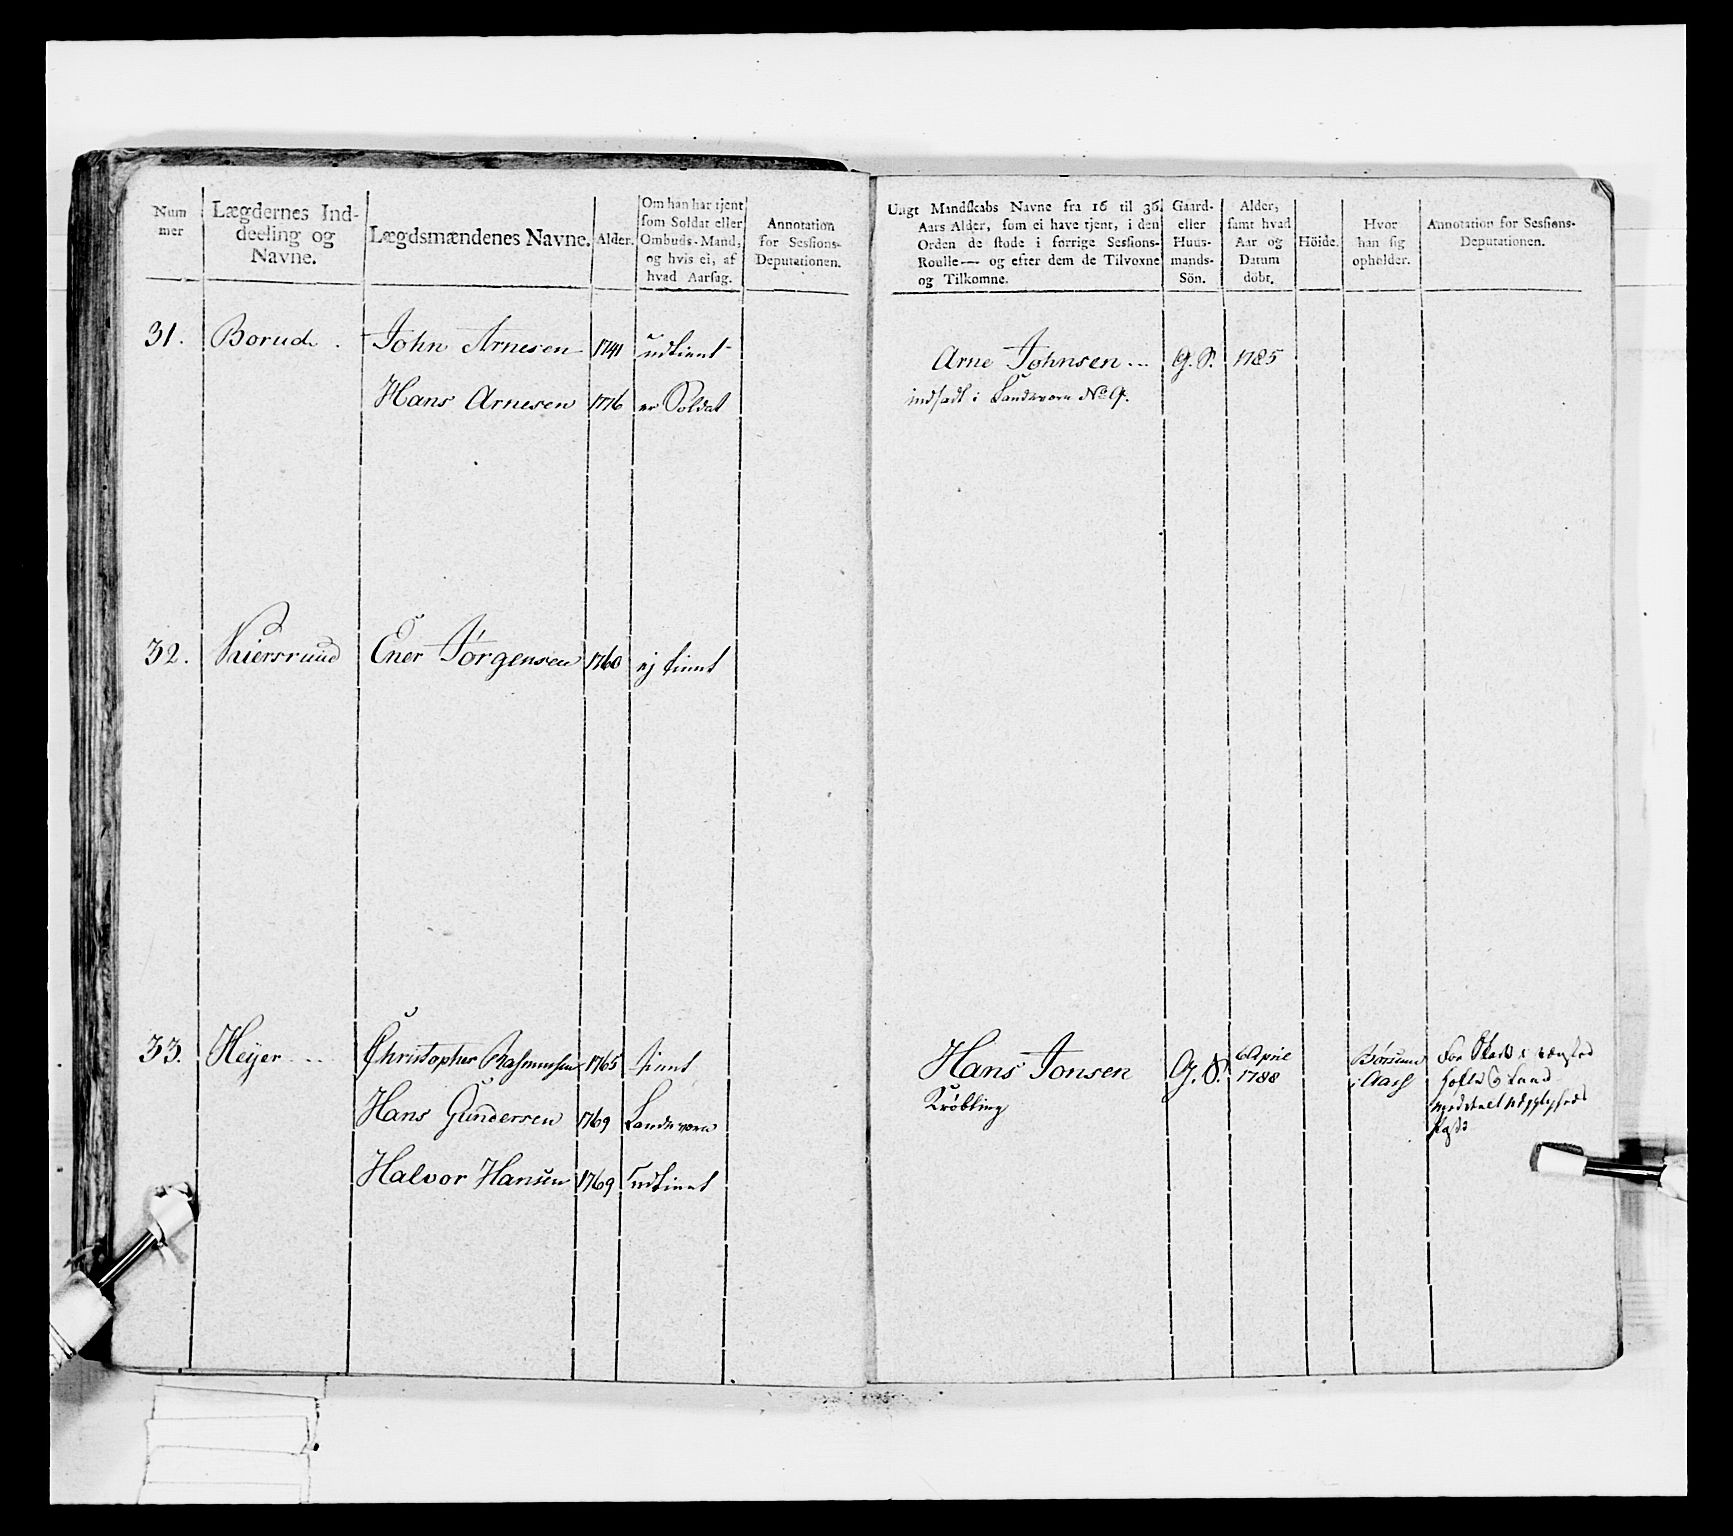 Num
mer
Lægdernes Ind-
deeling og
Navne.
Lægdsmændenes Navne.
Alder.
Om han har tjent
som Soldat eller
Ombuds-Mand,
og hvis ei, af
hvad Aarsag.
Annotation
for Sessions-
Deputationen.
31. Borud. John Arnesen 1741 udtient
Hans Arnesen 1776 er Soldat
32. Ener Jörgensen 1760 ej tient
33. Heÿer Christopher Rasmussen 1765 tient
Hans Gundersen 1769 Landevern
Halvor Hansen 1769 udtient
Ungt Mandskabs Navne fra 16 til 36
Aars Alder, som ei have tjent, i den
Orden de stode i forrige Sessions-
Roulle — og efter dem de Tilvoxne
og Tilkomne.
Gaard-
eller
Huus-
mands-
Sön.
Alder,
samt hvad
Aar og
Datum
döbt.
Höide.
Hvor
han sig
opholder.
Annotation for Sessions-
Deputationen.
Arne Johnsen G. S. 1785
indsadt i Landevern No 9.
Hans Jonsen G. S. 6 April 1788
Krøbling